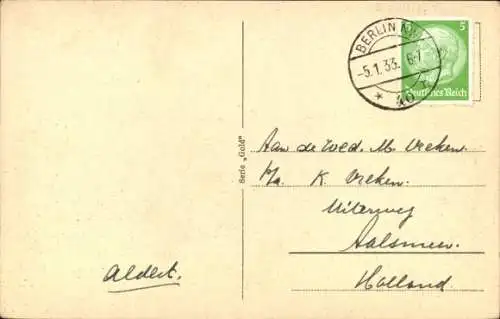 BERLIN
-5.1.33. 6-7
* *
5
Deutsches Reich
Serie „Gold"
Aan de Wed. M. Vreken.
p/a. K. Vreken.
Uiterweg
Aalsmeer.
Holland.
Aldert.